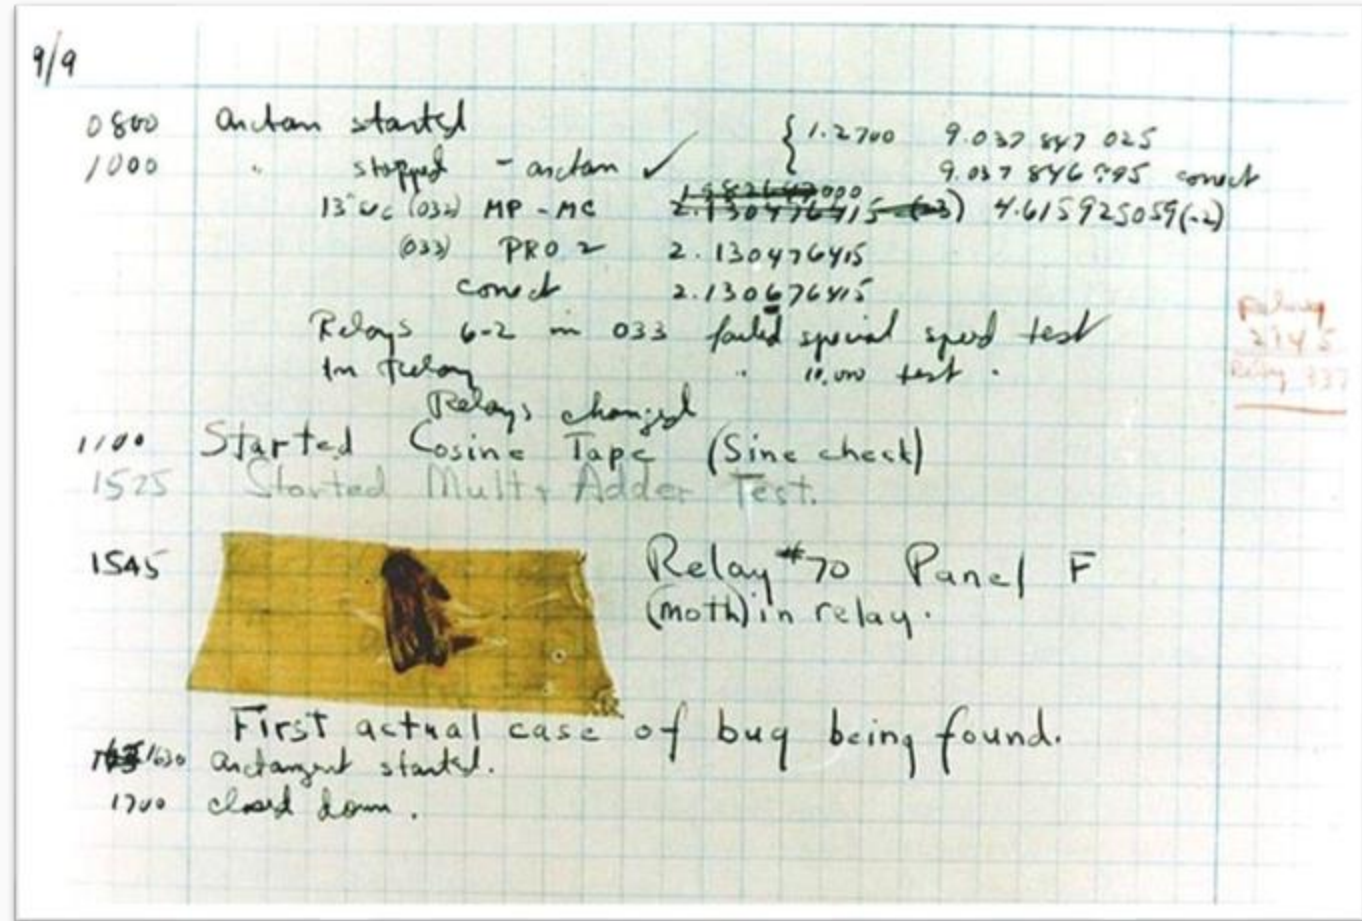 9/9
0800 Antan started { 1.2700 9.037 847 025
1000 " stopped - antan ✓ 9.037 846 995 conect
13"uc (032) MP - MC 2.130476415 (-3) 4.615925059(-2)
(033) PRO 2 2.130476415
conect 2.130676415
Relays 6-2 in 033 failed special speed test
In Relay " 10,000 test .
Relays changed
1100 Started Cosine Tape (Sine check)
1525 Started Mult + Adder Test.
1545 Relay #70 Panel F
(moth) in relay.
First actual case of bug being found.
1630 antangent started.
1700 closed down .
Relay
2145
Relay 337